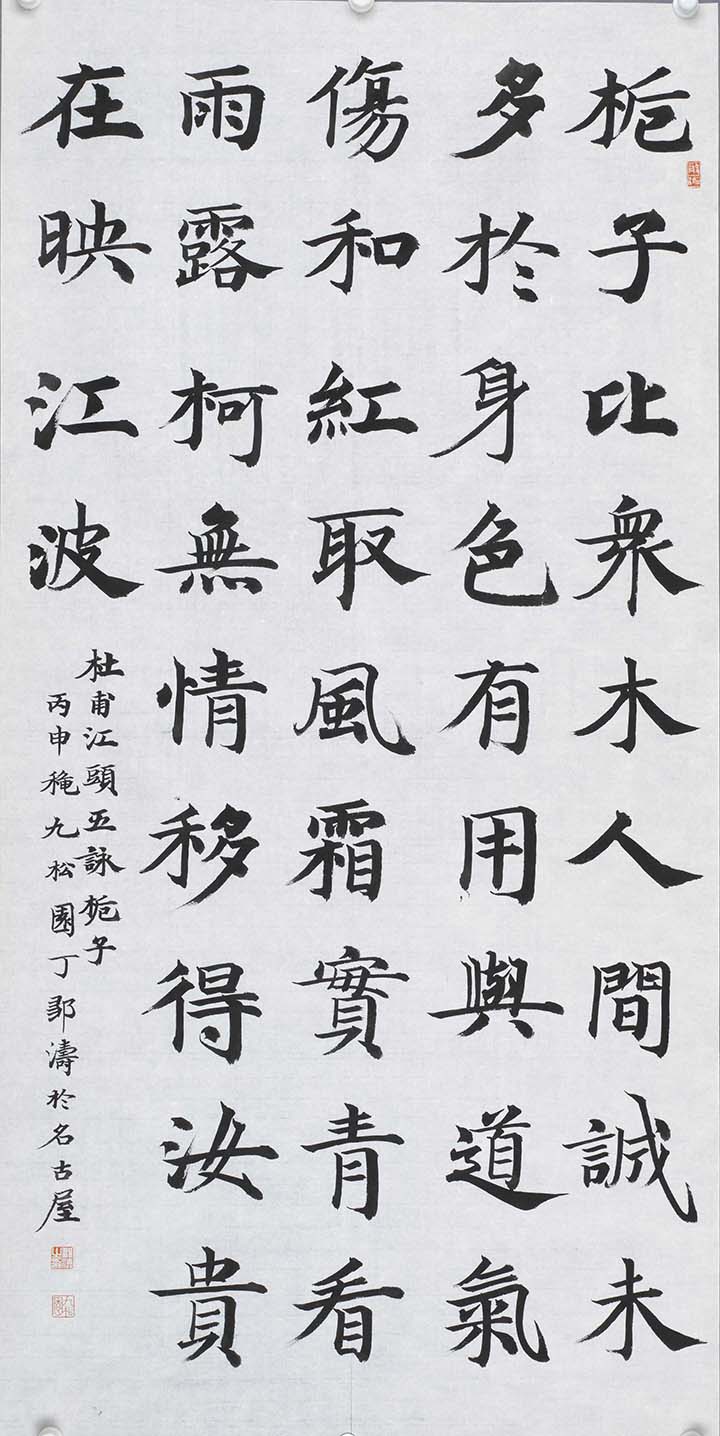 栀子比衆木人間誠未
多於身色有用與道氣
傷和紅取風霜實青看
雨露柯無情移得汝貴
在映江波
杜甫江頭五詠栀子
丙申穐九松園丁鄒濤於名古屋